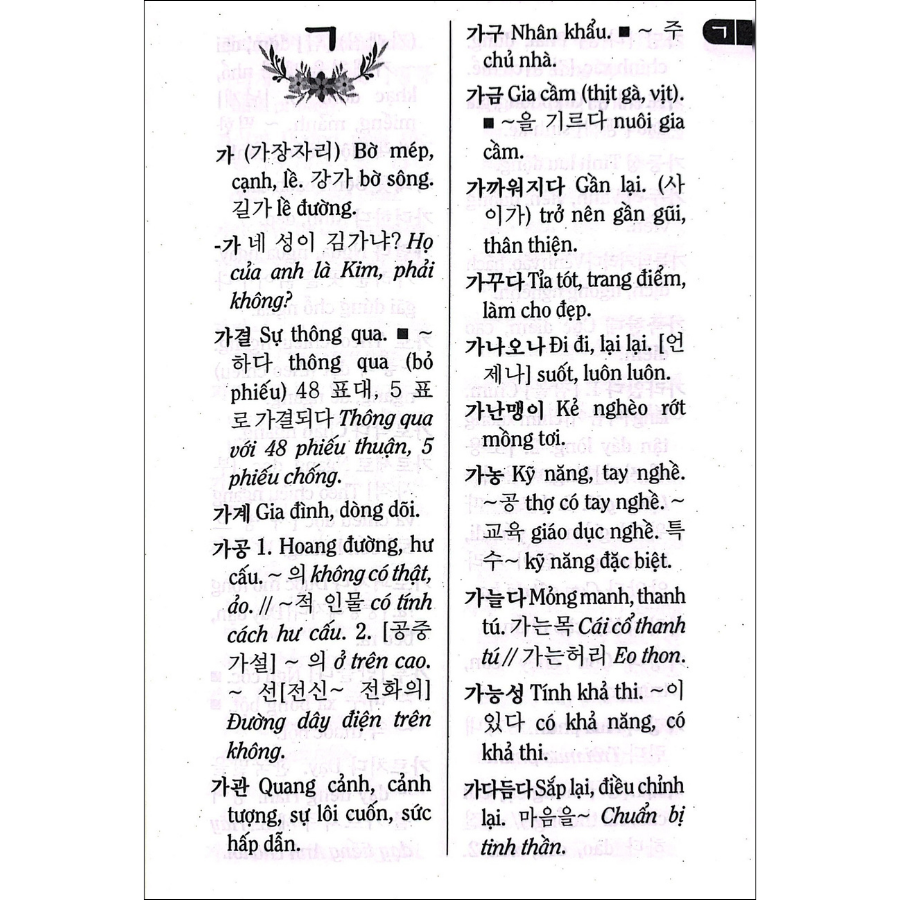 ㄱ
가 (가장자리) Bờ mép,
cạnh, lề. 강가 bờ sông.
길가 lề đường.
-가 네 성이 김가냐? Họ
của anh là Kim, phải
không?
가결 Sự thông qua. ■ ~
하다 thông qua (bỏ
phiếu) 48 표대, 5 표
로 가결되다 Thông qua
với 48 phiếu thuận, 5
phiếu chống.
가계 Gia đình, dòng dõi.
가공 1. Hoang đường, hư
cấu. ~ 의 không có thật,
ảo. // ~적 인물 có tính
cách hư cấu. 2. [공중
가설] ~ 의 ở trên cao.
~ 선[전신~ 전화의]
Đường dây điện trên
không.
가관 Quang cảnh, cảnh
tượng, sự lôi cuốn, sức
hấp dẫn.
가구 Nhân khẩu. ■ ~ 주
chủ nhà.
가금 Gia cầm (thịt gà, vịt).
■ ~을 기르다 nuôi gia
cầm.
가까워지다 Gần lại. (사
이가) trở nên gần gũi,
thân thiện.
가꾸다 Tỉa tót, trang điểm,
làm cho đẹp.
가나오나 Đi đi, lại lại. [언
제나] suốt, luôn luôn.
가난맹이 Kẻ nghèo rớt
mồng tơi.
가농 Kỹ năng, tay nghề.
~공 thợ có tay nghề. ~
교육 giáo dục nghề. 특
수~ kỹ năng đặc biệt.
가늘다 Mỏng manh, thanh
tú. 가는목 Cái cổ thanh
tú // 가는허리 Eo thon.
가능성 Tính khả thi. ~이
있다 có khả năng, có
khả thi.
가다듬다 Sắp lại, điều chỉnh
lại. 마음을~ Chuẩn bị
tinh thần.
ㄱ